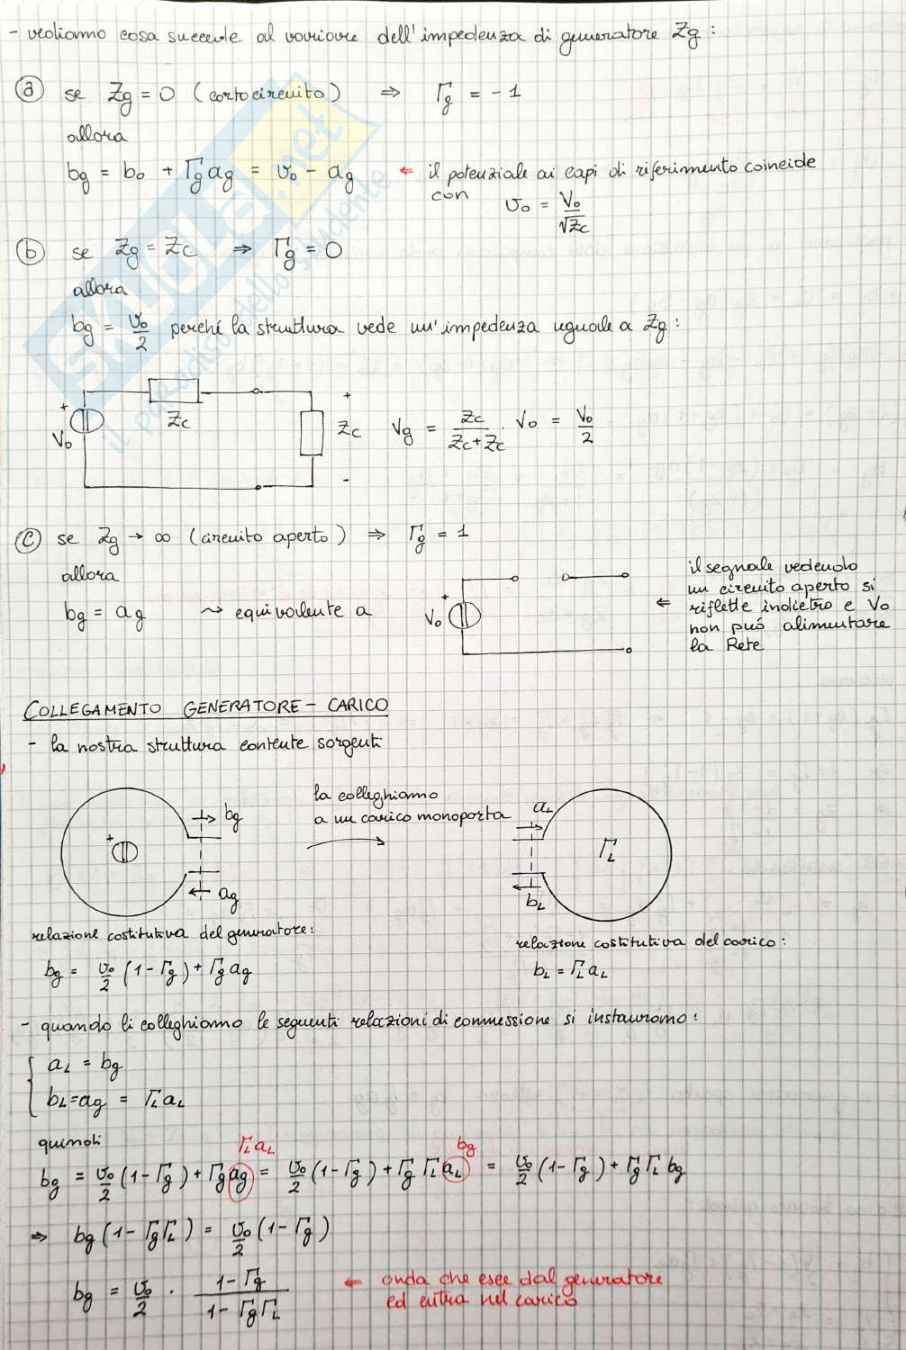 - vediamo cosa succede al variare dell'impedenza di generatore Zg :
ⓐ se Zg = 0 (cortocircuito) ⇒ Γg = -1
allora
bg = b₀ + Γg ag = v₀ - ag ← il potenziale ai capi di riferimento coincide
con v₀ = V₀/√Zc
ⓑ se Zg = Zc ⇒ Γg = 0
allora
bg = v₀/2 perché la struttura vede un'impedenza uguale a Zg :
+ V₀ Zc + Zc - Vg = Zc/(Zc+Zc) · V₀ = V₀/2
ⓒ se Zg → ∞ (circuito aperto) ⇒ Γg = 1
allora
bg = ag ⤳ equivalente a
+ V₀
⇐ il segnale vedendo
un circuito aperto si
riflette indietro e V₀
non può alimentare
la Rete
COLLEGAMENTO GENERATORE - CARICO
- la nostra struttura contente sorgenti
+ bg ag
la colleghiamo
a un carico monoporta
aL ΓL bL
relazione costitutiva del generatore:
bg = v₀/2 (1 - Γg) + Γg ag
relazione costitutiva del carico :
bL = ΓL aL
- quando li colleghiamo le seguenti relazioni di connessione si instaurano :
{ aL = bg
bL = ag = ΓL aL
quindi
ΓL aL bg
bg = v₀/2 (1 - Γg) + Γg ag = v₀/2 (1 - Γg) + Γg ΓL aL = v₀/2 (1 - Γg) + Γg ΓL bg
⇒ bg (1 - Γg ΓL) = v₀/2 (1 - Γg)
bg = v₀/2 · (1 - Γg)/(1 - Γg ΓL) ← onda che esce dal generatore
ed entra nel carico
SKUOLA.net
il paradiso dello studente